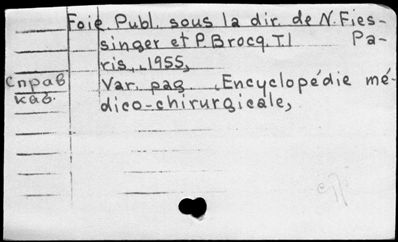 Foie. Publ. sous la dir. de N. Fies-
singer et P. Brocq. T.I Pa-
ris, 1955,
Справ Var. pag. Encyclopédie mé-
каб. dico-chirurgicale,